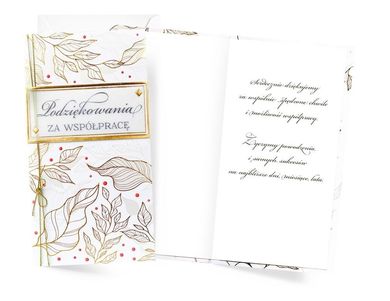 Podziękowania
ZA WSPÓŁPRACĘ
Serdecznie dziękujemy
za wspólnie spędzone chwile
i możliwość współpracy.
Życzymy powodzenia
i samych sukcesów
na najbliższe dni, miesiące, lata.